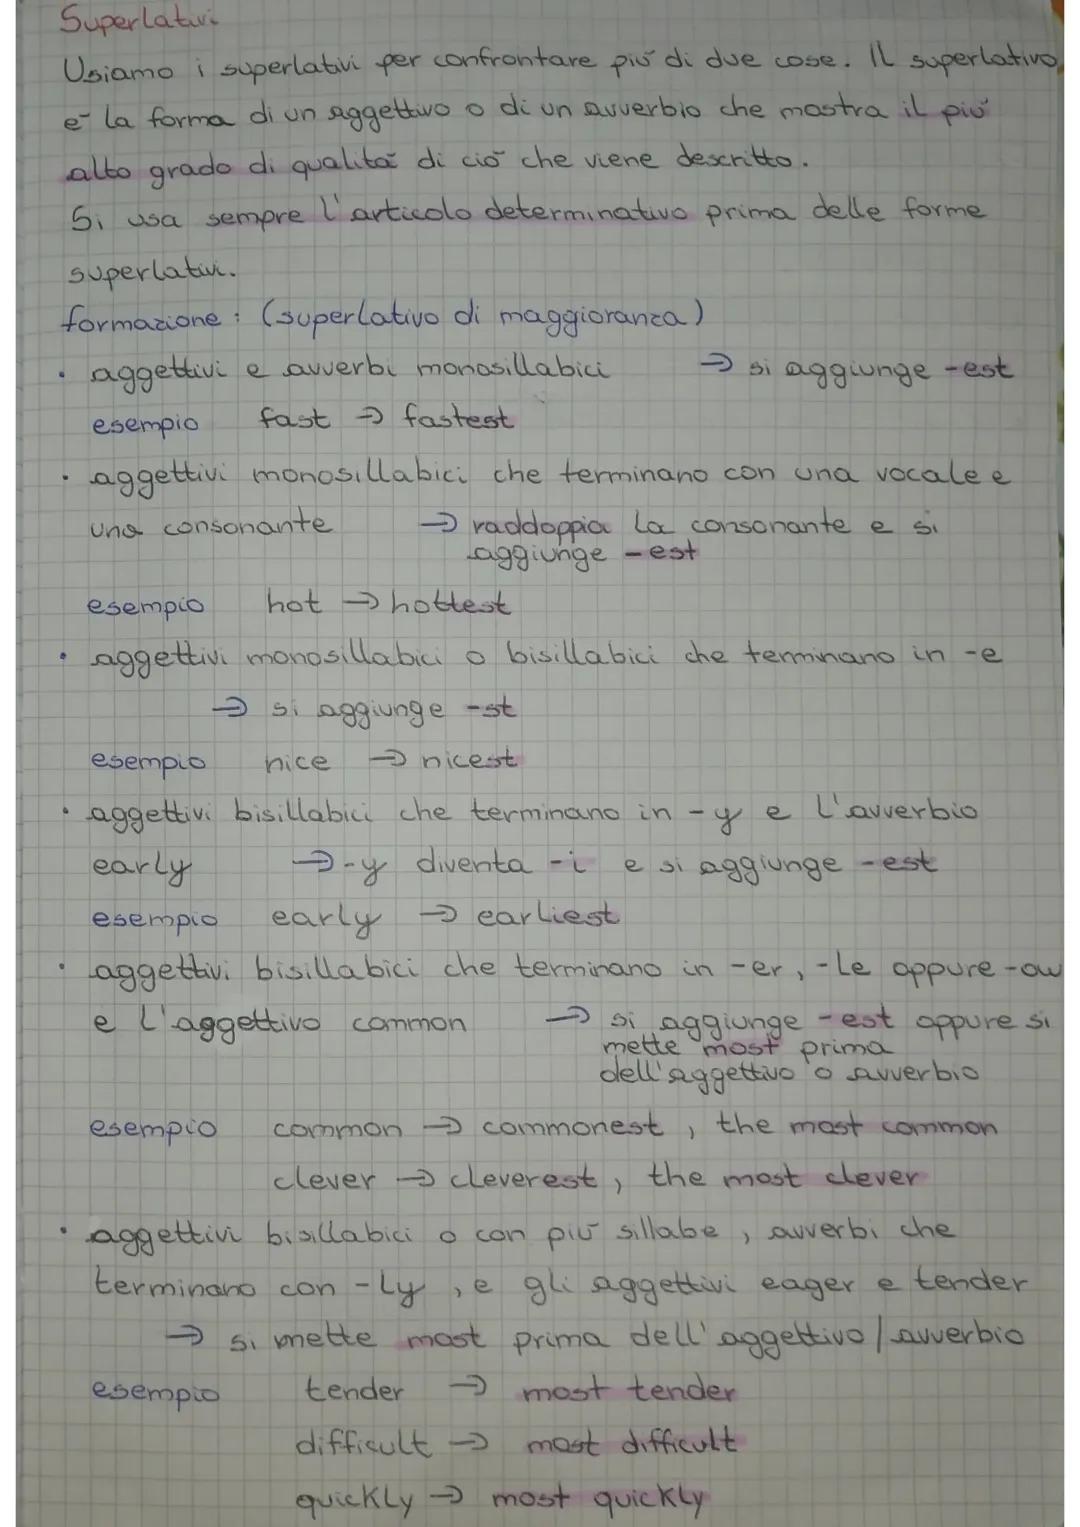 Superlativi
Usiamo i superlativi per confrontare più di due cose. Il superlativo
è la forma di un aggettivo o di un avverbio che mostra il più
alto grado di qualità di ciò che viene descritto.
Si usa sempre l'articolo determinativo prima delle forme
superlativi.
formazione: (superlativo di maggioranza)
• aggettivi e avverbi monosillabici → si aggiunge -est
esempio fast → fastest
• aggettivi monosillabici che terminano con una vocale e
una consonante → raddoppia la consonante e si
aggiunge -est
esempio hot → hottest
• aggettivi monosillabici o bisillabici che terminano in -e
→ si aggiunge -st
esempio nice → nicest
• aggettivi bisillabici che terminano in -y e l'avverbio
early → -y diventa -i e si aggiunge -est
esempio early → earliest
• aggettivi bisillabici che terminano in -er, -le oppure -ow
e l'aggettivo common → si aggiunge -est oppure si
mette most prima
dell'aggettivo o avverbio
esempio common → commonest, the most common
clever → cleverest, the most clever
• aggettivi bisillabici o con più sillabe, avverbi che
terminano con -ly, e gli aggettivi eager e tender
→ si mette most prima dell'aggettivo/avverbio
esempio tender → most tender
difficult → most difficult
quickly → most quickly